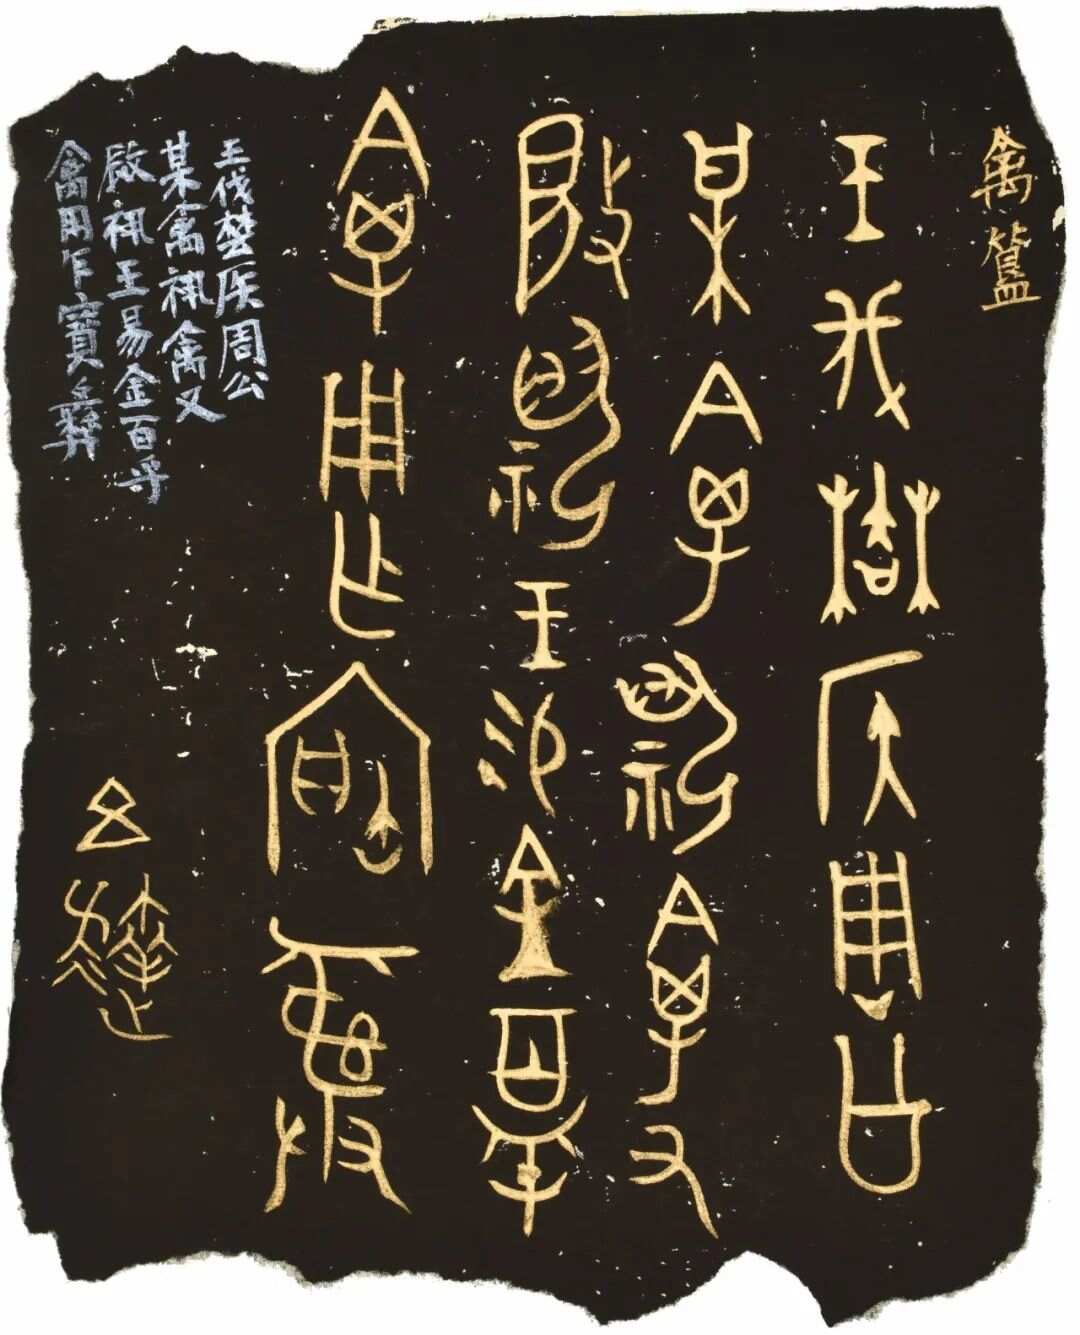 禽簋
王伐侯周公
某禽祝禽又
祝王易金百寽
禽用乍寶彝
王伐侯周公
某禽祝禽又
祝王易金百寽
禽用乍寶彝
五